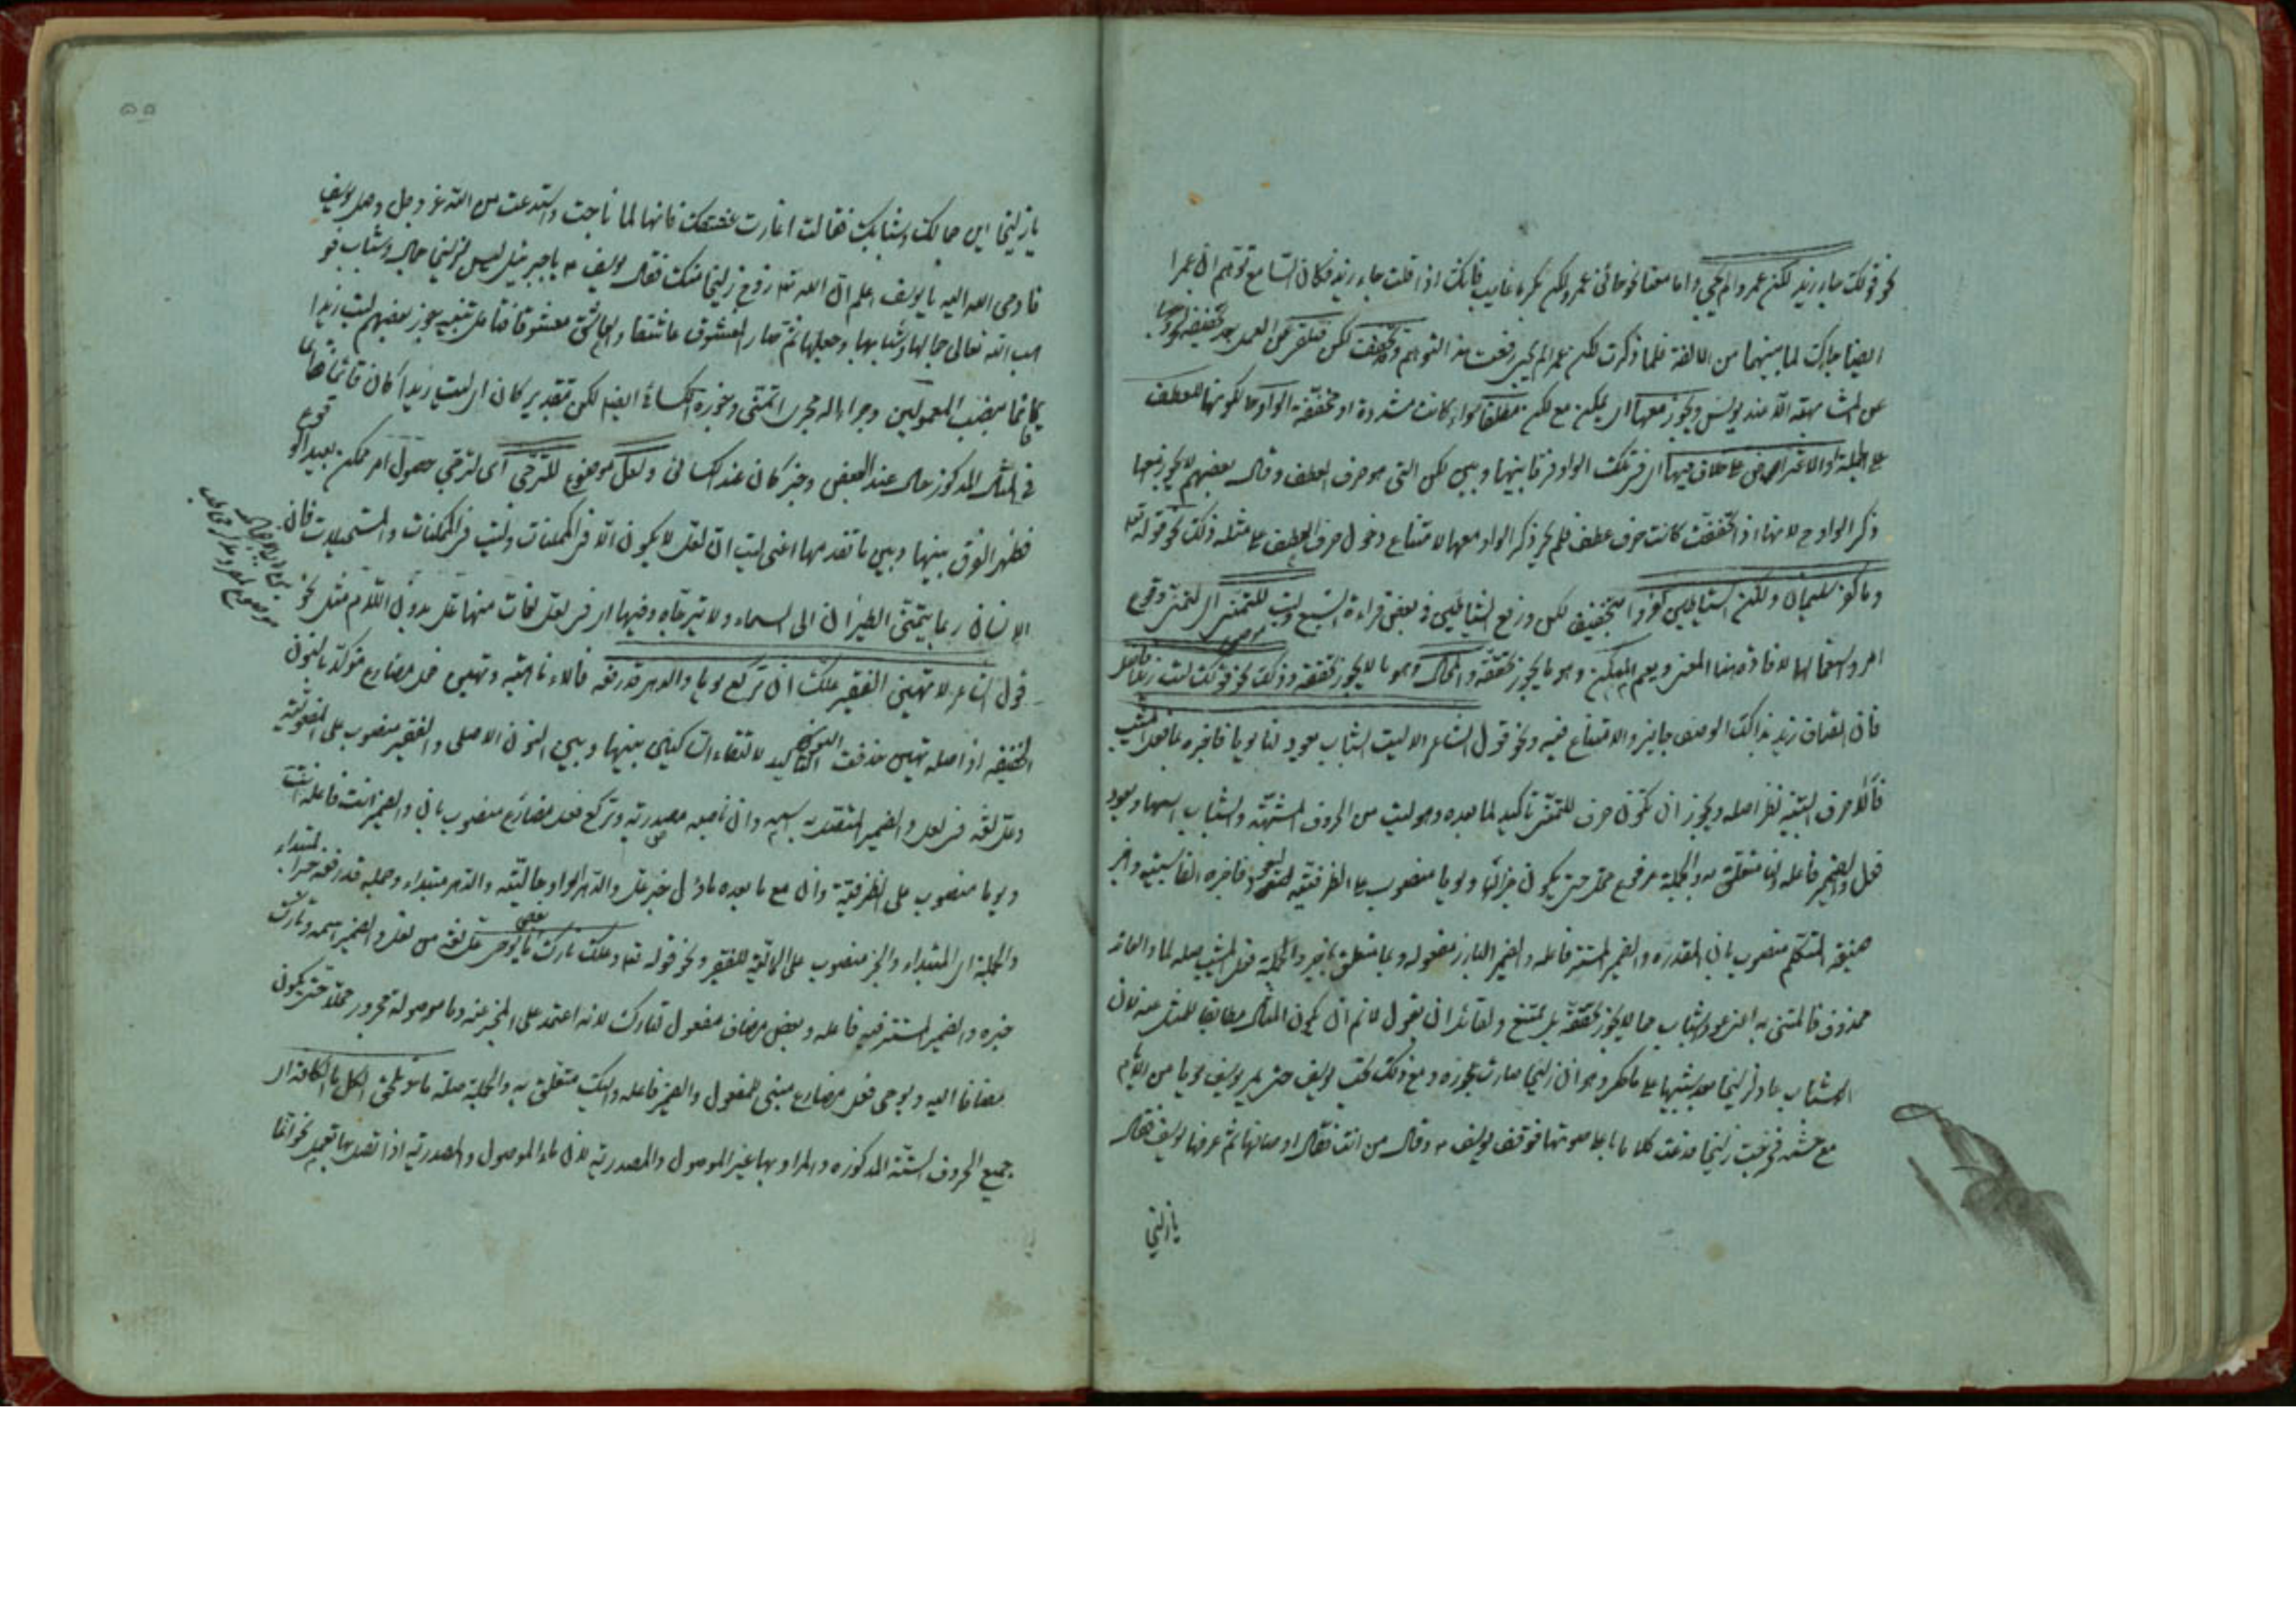 نحو قولك جاء زيد لكن عمرو لم يجئ واما معنا نحو جائنى عمرو لكن بكرا غايب فانك اذا قلت جاء زيد فكان السامع توهم ان عمرا
ايضا جاءك لما بينهما من الالفة فلما ذكرت لكن عمرا لم يجئ رفعت هذا التوهم وقد تخفف لكن فتلغى عن العمل بعد تخفيفه
عن المشابهة الا عند يونس ويجوز معها اى يمكن مع لكن مطلقا سواء كانت مشددة او مخففة الواو اما لكونها للعطف
على الجملة او الاعتراض على خلاف فيها اى فى تلك الواو فرقا بينها وبين لكن التى هو حرف العطف وقال بعضهم لا يجوز معها
ذكر الواو ح لانها اذا خففت كانت حرف عطف فلم يجز ذكر الواو معها لامتناع دخول حرف العطف على مثله وذلك نحو قوله تع
وما كفر سليمان ولكن الشياطين كفروا بتخفيف لكن ورفع الشياطين فى بعض قراءة السبع وليت للتمنى اى لتمنى وقوع
امر واستعمالها لافادة هذا المعنى ويعم الممكن وهو ما يجوز تحققه والمحال وهو ما لا يجوز تحققه وذلك نحو قولك ليت زيدا فاضل
فان اتصاف زيد بذلك الوصف جايز ولا امتناع فيه ونحو قول الشاعر الا ليت الشباب يعود لنا يوما فاخبره بما فعل المشيب
فألا حرف التنبيه نظرا اصله ويجوز ان تكون حرف للتمنى تأكيد لما بعده وهو ليت من الحروف المشبهة والشباب اسمها ويعود
فعل والضمير فاعله ولنا متعلق به والجملة مرفوع محلا حتى يكون خبرا لها ويوما منصوب على الظرفية ليعود وفاخبره الفا سببية واخبر
صيغة المتكلم منصوب بان المقدره والضمير المستتر فاعله والضمير البارز مفعوله وبما متعلق باخبر والجملة فعل المشيب صله لما والعائد
محذوف فالمتمنى به الذى هو عود الشباب مما لا يجوز تحققه بل يمتنع ولقائل ان يقول لا نم ان يكون المثال مطابقا للمثل عنه لان
الشباب عاد لزليخا بعد شيبها على ما حكى وهو ان زليخا صارت عجوزه ومع ذلك تحب يوسف حتى يمر يوسف يوما من الايام
مع حشمه فخرجت زليخا فدعت كلاما باعلا صوتها فوقف يوسف م وقال من انت فقال اوصافها ثم عرفها يوسف فقال
يا زليخا
٥٥
يا زليخا اين جمالك وشبابك فقالت اغارت عشقك فانها لما ناجت واستدعت من الله عز وجل وصل يوسف
فاوحى الله اليه يا يوسف اعلم ان الله تع زوج زليخا منك فقال يوسف م يا جبرئيل ليس لزليخا جمال وشباب فو
هب الله تعالى جمالها وشبابها وجعلها ثم صار المعشوق عاشقا والعاشق معشوقا فتأمل تنبيه يجوز بعضهم ليت زيدا
قائما بنصب المعمولين وجراء اله مجرى اتمنى وجوزه الكسائى ايضا لكن بتقدير كان اى ليت زيدا كان قائما
فى المثال المذكور حال عند البعض وخبر كان عند الكسائى ولعل موضوع للترجى اى لترجى حصول امر ممكن بعيد الوقوع
فظهر الفرق بينها وبين ما تقدمها اعنى ليت ان لعل لا يكون الا فى الممكنات وليت فى الممكنات والمستحيلات فان
الانسان ربما يتمنى الطيران الى السماء ولا يترجاه وفيها اى فى لعل لغات منها عل بدون اللام مثل نحو
قول الشاعر لا تهين الفقير علك ان تركع يوما والدهر قد رفعه فالاء ناهيه وتهين فعل مضارع مؤكد بالنون
الخفيفة اذ اصله تهينن حذفت النون التأكيد لالتقاء الساكنين بينها وبين النون الاصلى والفقير منصوب على المفعولية
وعل لغة فى لعل والضمير المتصل به اسمه وان ناصبه مصدرية وتركع فعل مضارع منصوب بان والضمير انت فاعله
ويوما منصوب على الظرفية وان مع ما بعده ماؤل خبر عل والدهر الواو حالية والدهر مبتداء وجملة قد رفعه خبر المبتداء
والجملة اى المبتداء والخبر منصوب على الحالية للفقير ونحو قوله تع وعلك تارك بعض ما يوحى عل لغة من لعل والضمير اسمه وتارك
خبره والضمير المستتر فيه فاعله وبعض مضاف مفعول لتارك لانه اعتمد على المخبر عنه وما موصولة مجرور محلا حتى يكون
مضافا اليه ويوحى فعل مضارع مبنى للمفعول والضمير فاعله واليك متعلق به والجملة صلة ما وتلحق الكل ما الكافة اى
جميع الحروف الستة المذكوره والمراد بها غير الموصول والمصدرية لان ماء الموصول والمصدرية اذا اتصل بها تعمل نحو انما